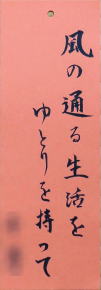 風の通る生活を
ゆとりを持って